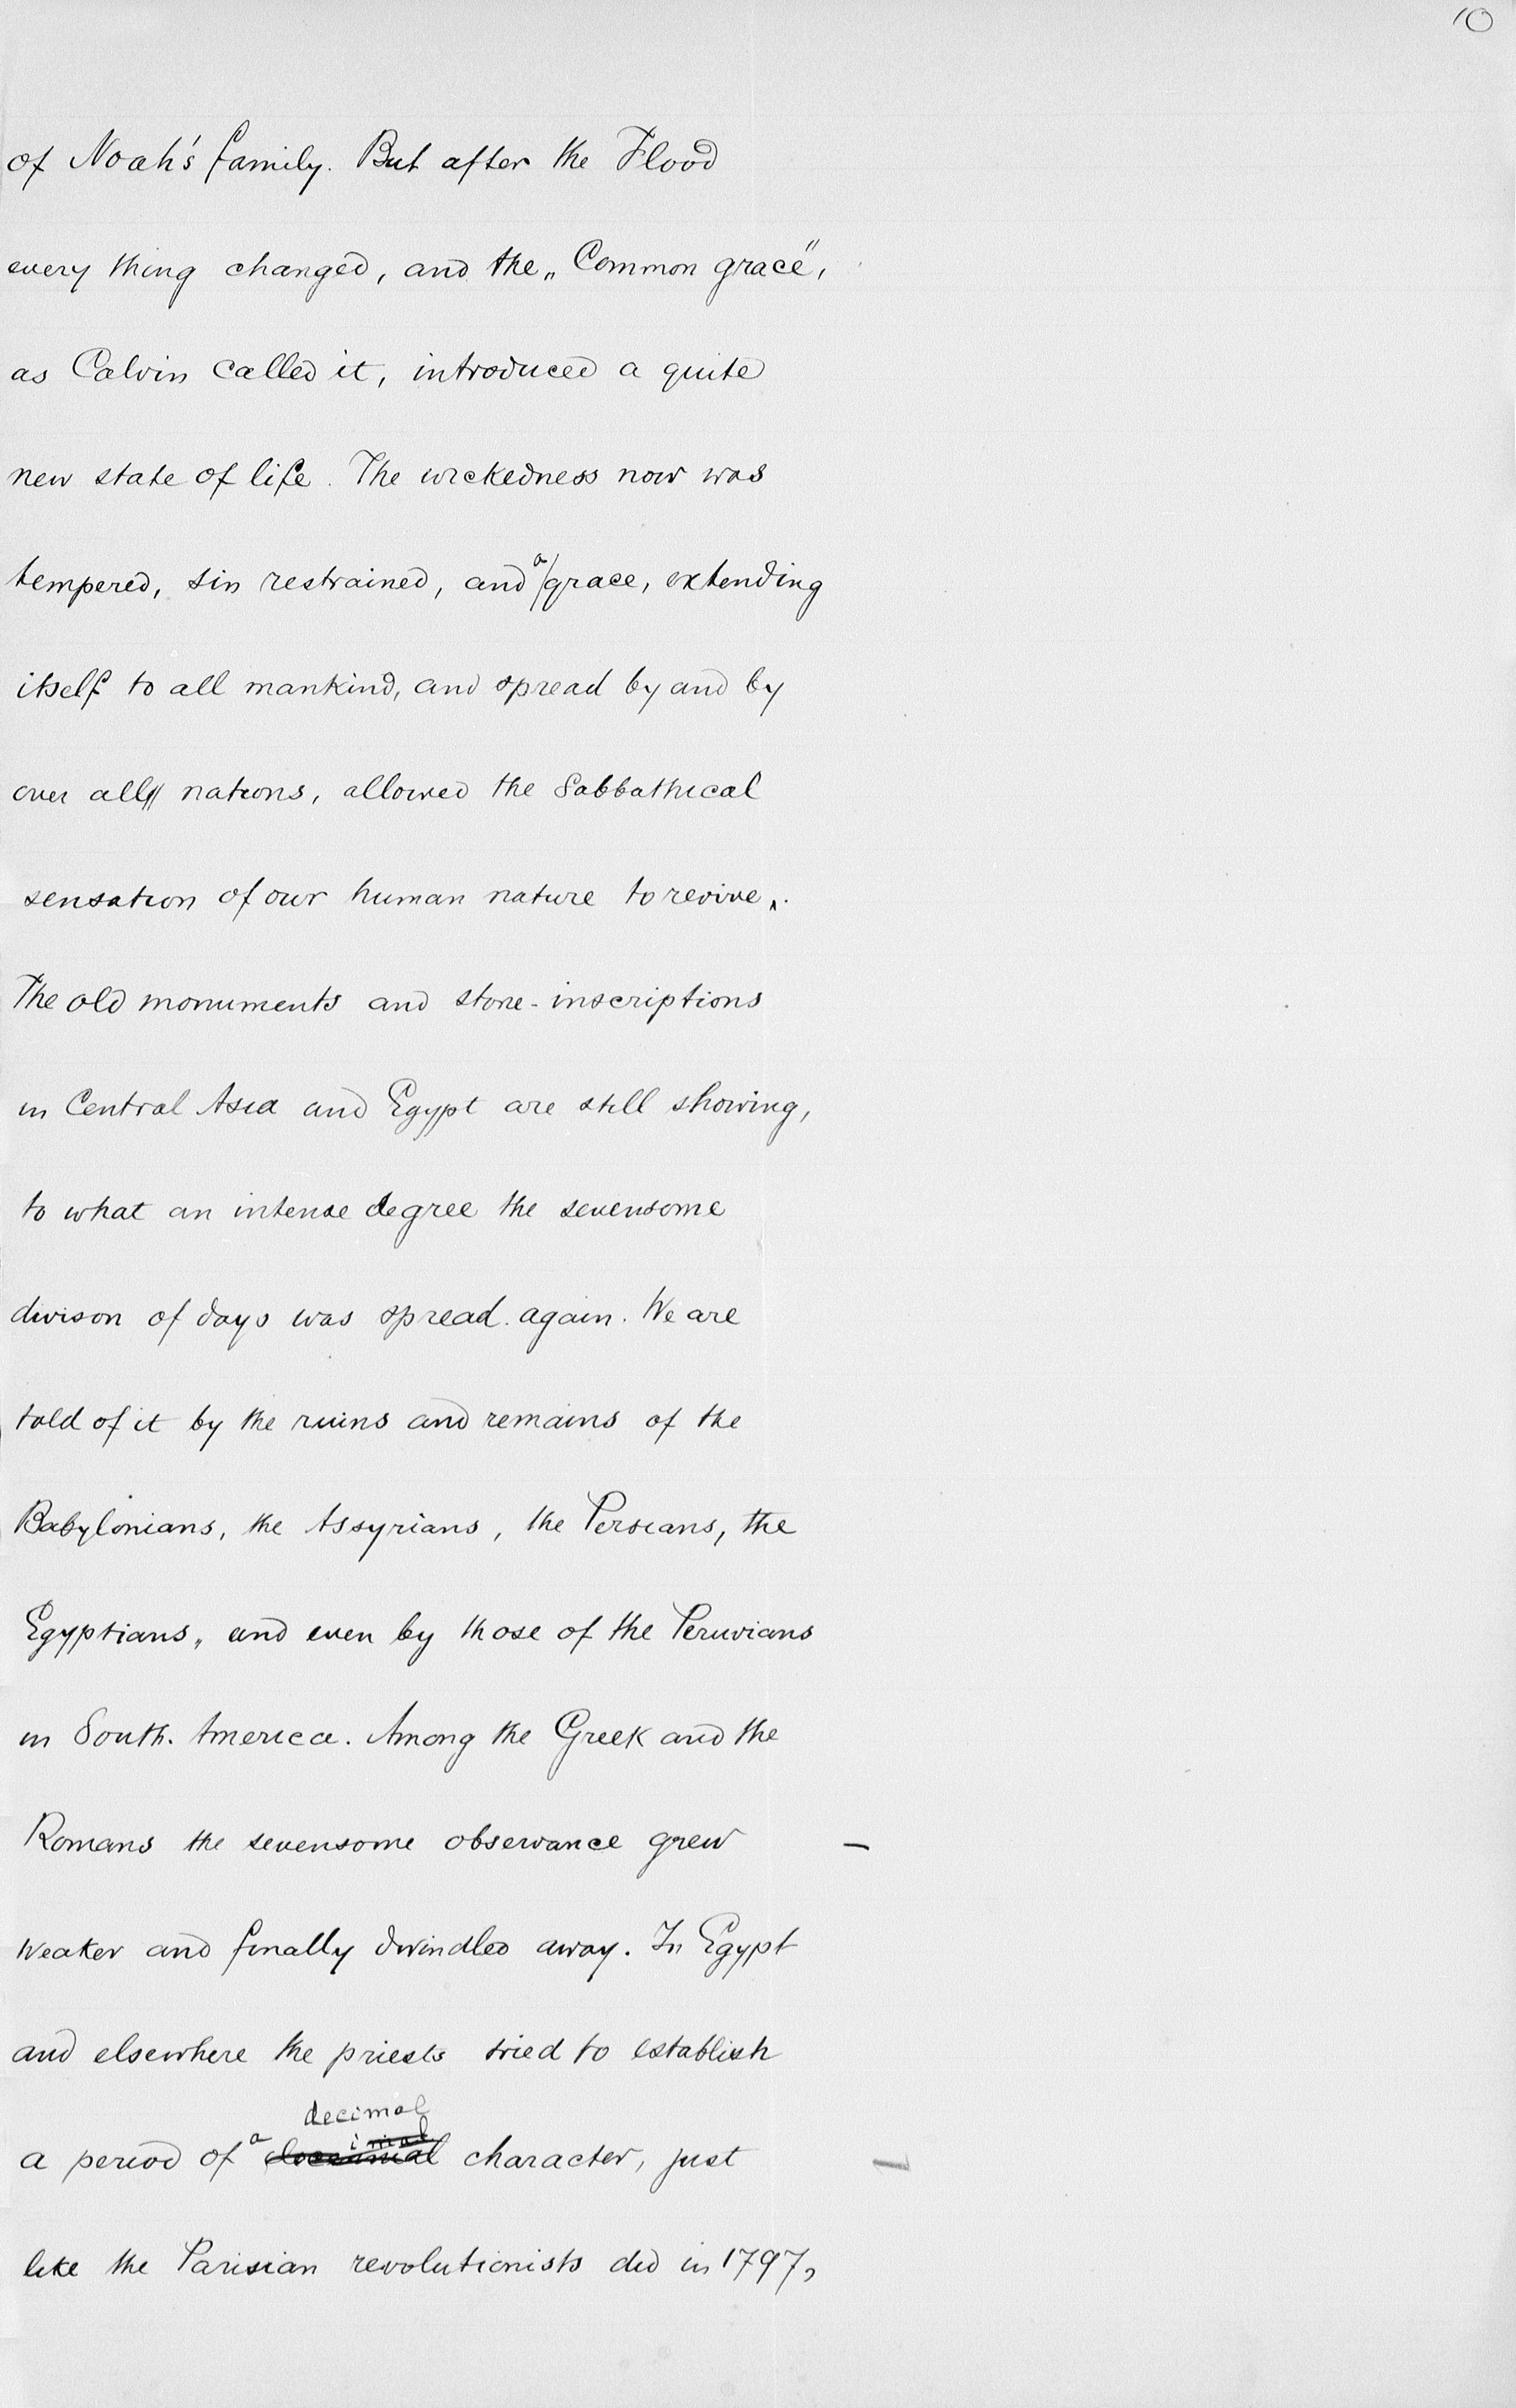 10
of Noah's family. But after the Flood
every thing changed, and the „Common grace",
as Calvin called it, introduced a quite
new state of life. The wickedness now was
tempered, sin restrained, and a grace, extending
itself to all mankind, and spread by and by
over all nations, allowed the Sabbathical
sensation of our human nature to revive.
The old monuments and stone-inscriptions
in Central Asia and Egypt are still showing,
to what an intense degree the sevensome
divison of days was spread again. We are
told of it by the ruins and remains of the
Babylonians, the Assyrians, the Persians, the
Egyptians, and even by those of the Peruvians
in South. America. Among the Greek and the
Romans the sevensome observance grew
weaker and finally dwindled away. In Egypt
and elsewhere the priests tried to establish
decimal
a period of a character, just
like the Parisian revolutionists did in 1797,